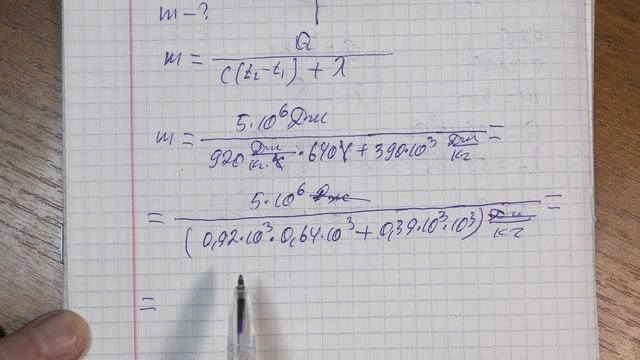 m - ?
m = Q / (c(t₂ - t₁) + λ)
m = 5·10⁶ Дж / (920 Дж/кг·°C · 640°C + 390·10³ Дж/кг) =
= 5·10⁶ Дж / ((0,92·10³·0,64·10³ + 0,39·10³·10³) Дж/кг) =
=